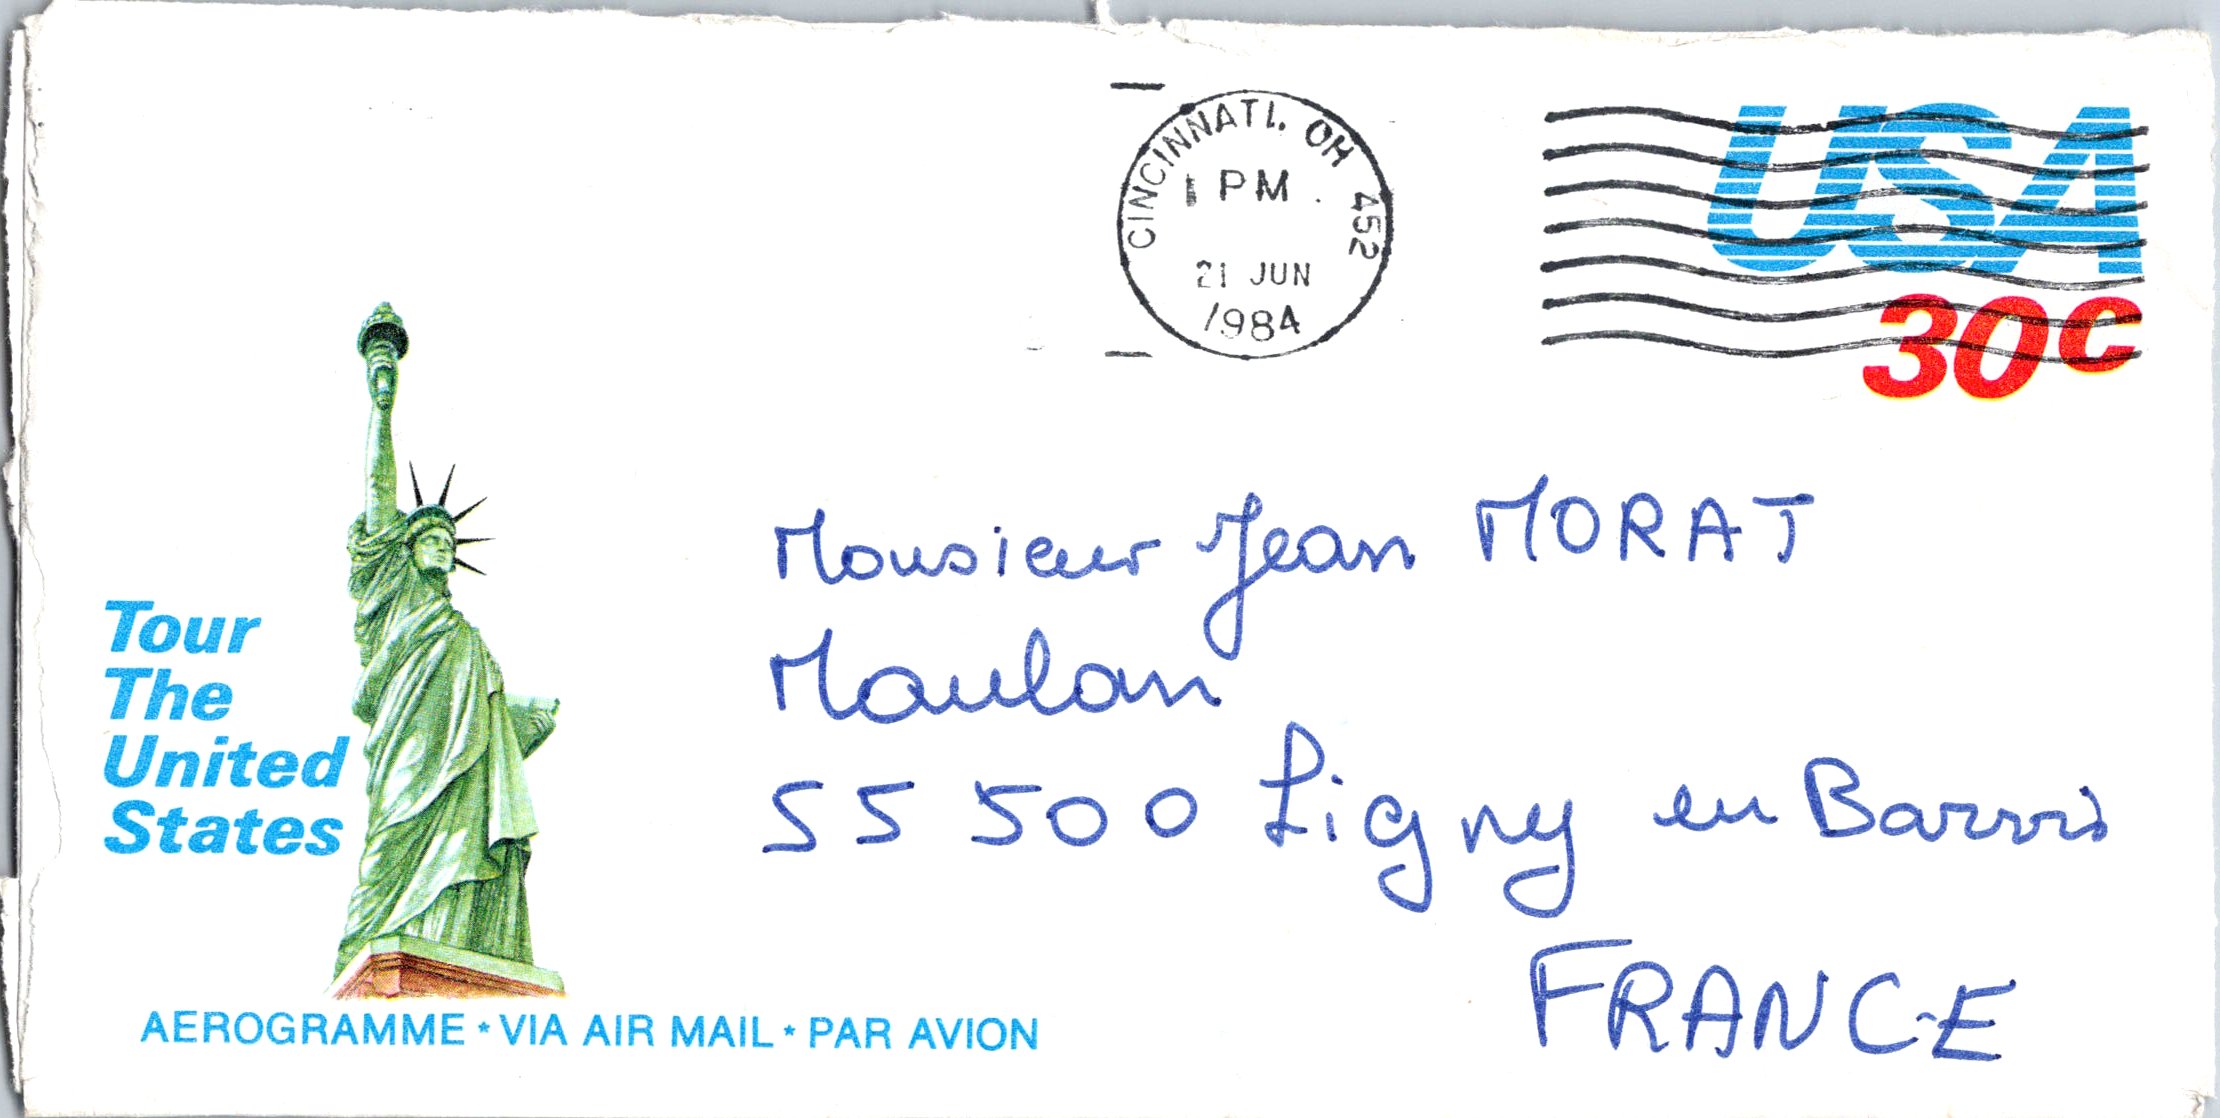 CINCINNATI, OH 452
1 PM
21 JUN
1984
USA
30c
Monsieur Jean MORAT
Maulan
55 500 Ligny en Barrois
FRANCE
Tour
The
United
States
AEROGRAMME * VIA AIR MAIL * PAR AVION